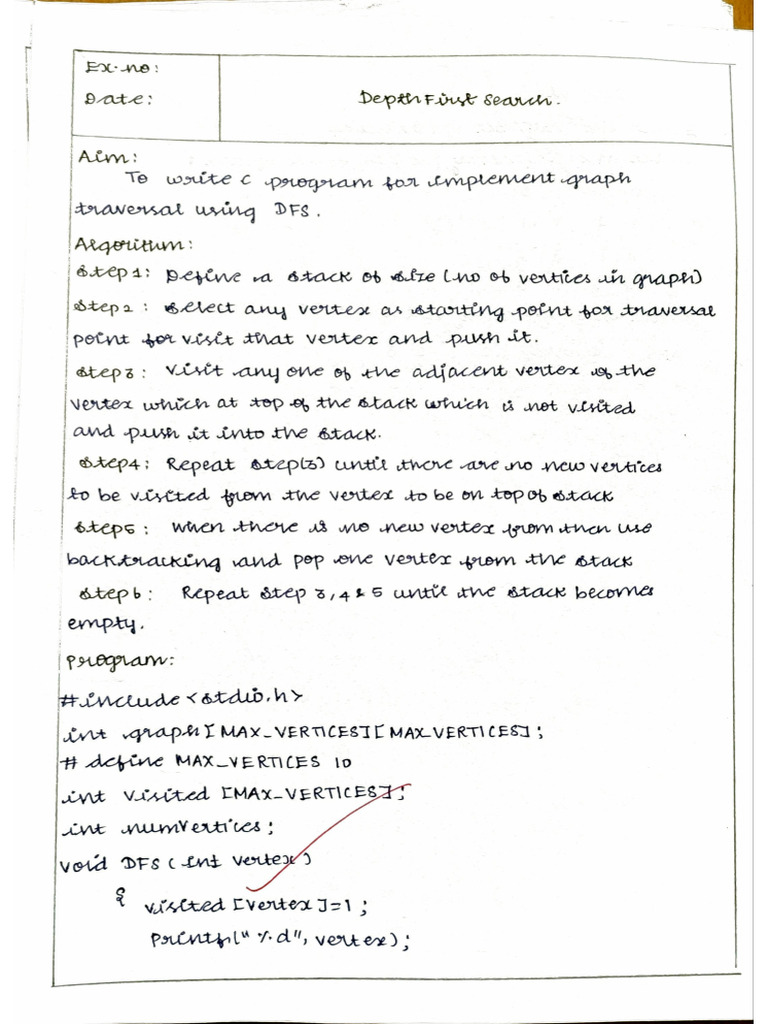 Ex.no:
Date:
Depth First Search.
Aim:
To write c program for implement graph
traversal using DFS.
Algorithm:
Step 1: Define a stack of size (no of vertices in graph)
Step 2: Select any vertex as starting point for traversal
point for visit that vertex and push it.
Step 3: Visit any one of the adjacent vertex of the
vertex which at top of the stack which is not visited
and push it into the stack.
Step4: Repeat step(3) until there are no new vertices
to be visited from the vertex to be on top of stack
Step5: When there is no new vertex from then use
backtracking and pop one vertex from the stack
Step6: Repeat step 3, 4 & 5 until the stack becomes
empty.
Program:
#include <stdio.h>
int graph[MAX_VERTICES][MAX_VERTICES];
# define MAX_VERTICES 10
int visited [MAX_VERTICES];
int numvertices;
void DFS (int vertex)
{ visited [vertex]=1;
printf(" %d", vertex);